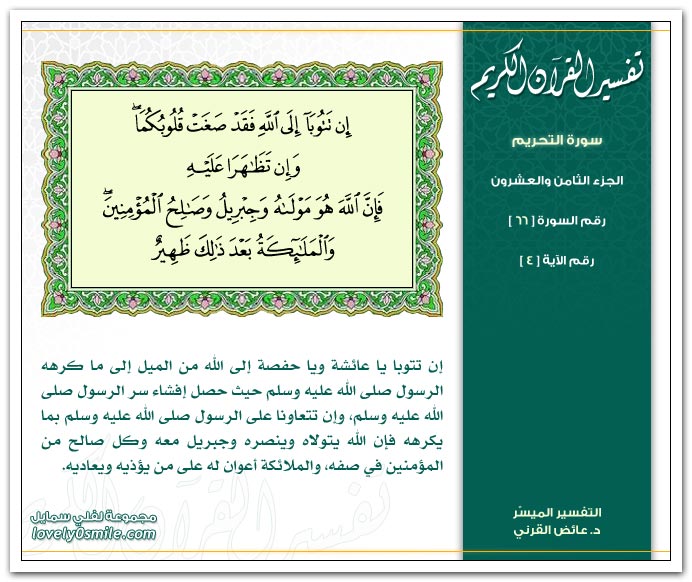 تفسير القرآن الكريم
سورة التحريم
الجزء الثامن والعشرون
رقم السورة [ ٦٦ ]
رقم الآية [ ٤ ]
إِن تَتُوبَآ إِلَى ٱللَّهِ فَقَدْ صَغَتْ قُلُوبُكُمَا ۖ
وَإِن تَظَٰهَرَا عَلَيْهِ
فَإِنَّ ٱللَّهَ هُوَ مَوْلَىٰهُ وَجِبْرِيلُ وَصَٰلِحُ ٱلْمُؤْمِنِينَ ۖ
وَٱلْمَلَٰٓئِكَةُ بَعْدَ ذَٰلِكَ ظَهِيرٌ
إن تتوبا يا عائشة ويا حفصة إلى الله من الميل إلى ما كرهه
الرسول صلى الله عليه وسلم حيث حصل إفشاء سر الرسول صلى
الله عليه وسلم، وإن تتعاونا على الرسول صلى الله عليه وسلم بما
يكرهه فإن الله يتولاه وينصره وجبريل معه وكل صالح من
المؤمنين في صفه، والملائكة أعوان له على من يؤذيه ويعاديه.
التفسير الميسّر
د. عائض القرني
مجموعة لفلي سمايل
lovely0smile.com
تفسير القرآن الكريم